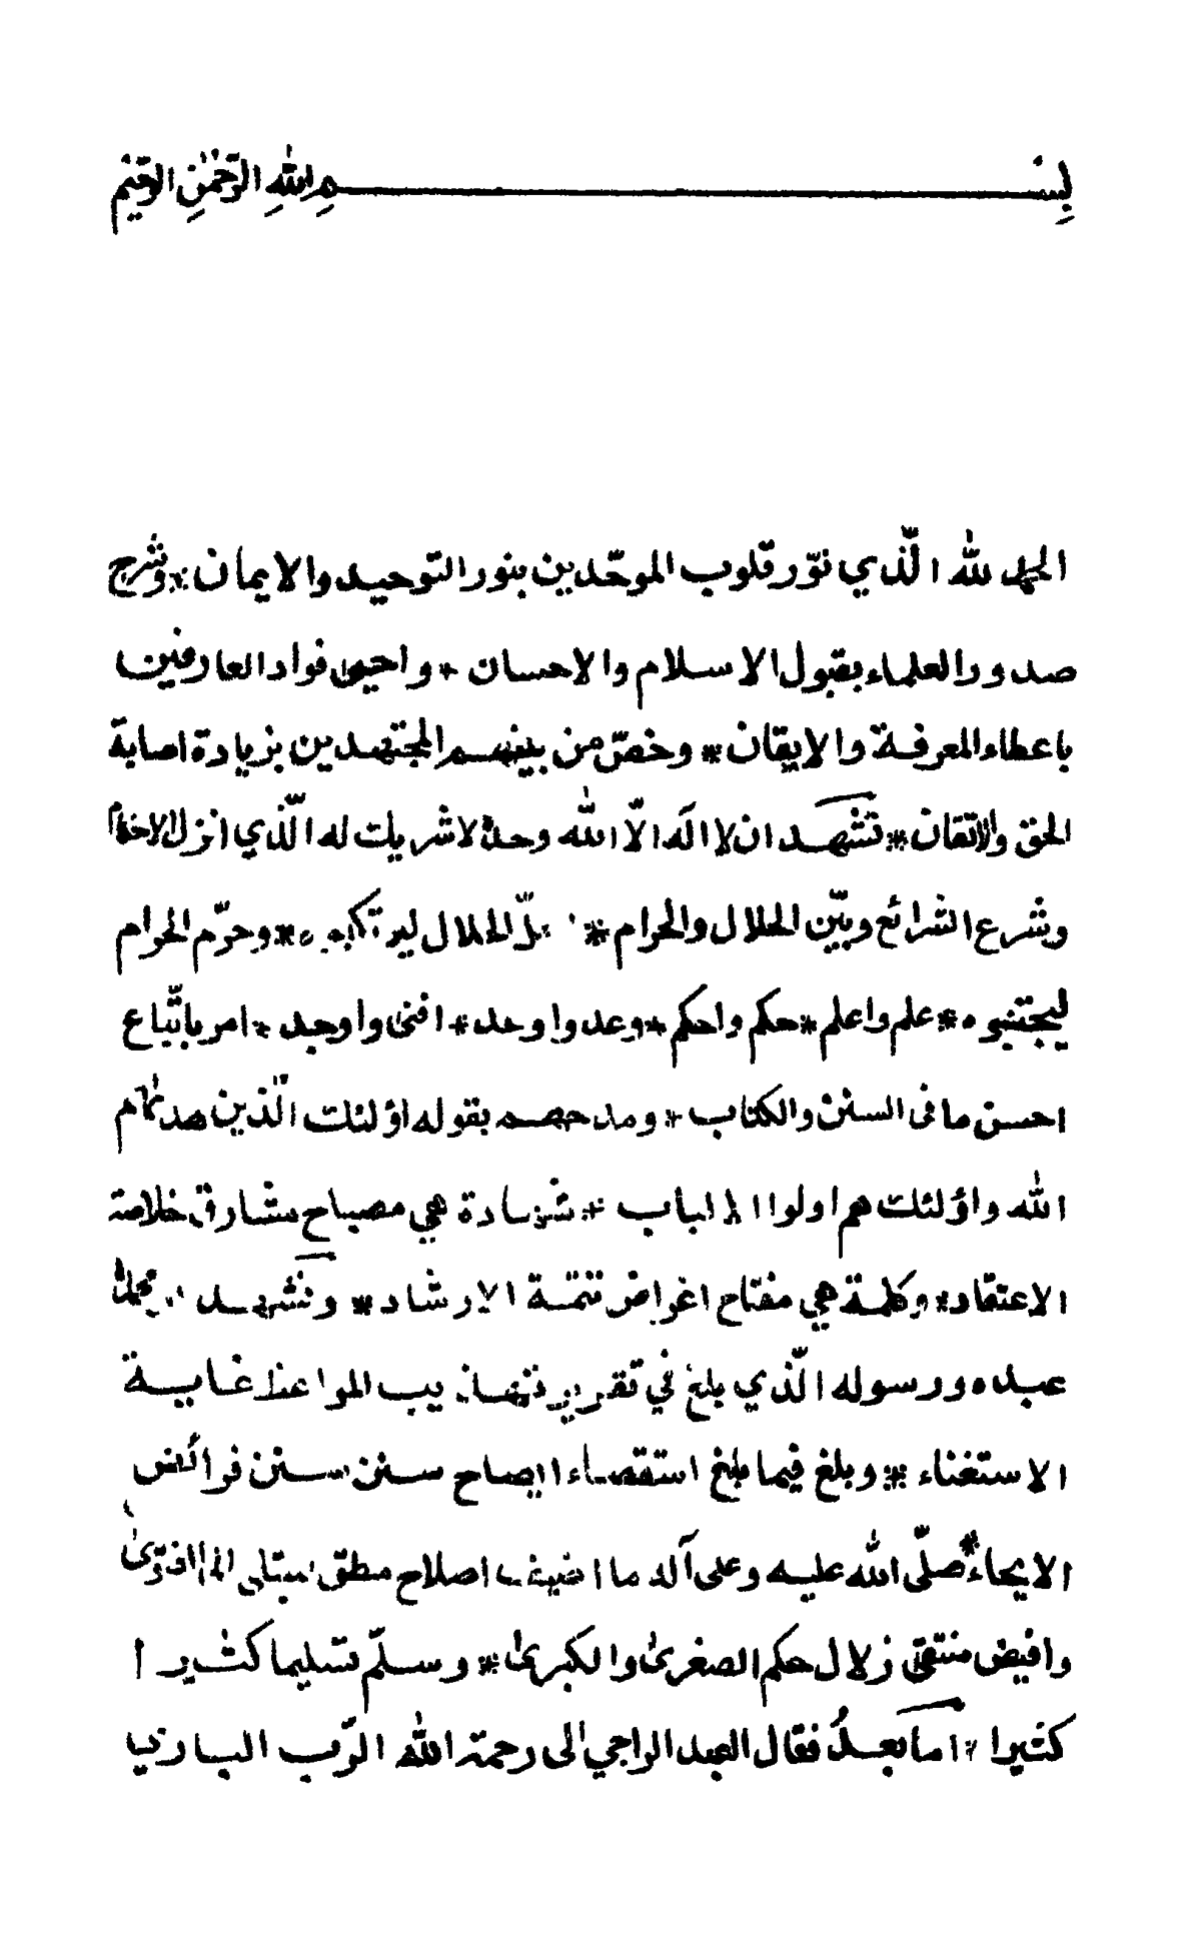 بِسْمِ اللهِ الرَّحْمٰنِ الرَّحِيْمِ
الحمد لله الّذي نوّر قلوب الموحّدين بنور التوحيد والايمان * وشرح
صدور العلماء بقبول الاسلام والاحسان * واحيى فواد العارفين
باعطاء المعرفة والايقان * وخصّ من بينهم المجتهدين بزيادة اصابة
الحق والاتقان * نشهد ان لا اله الّا الله وحده لا شريك له الّذي انزل الاحكام
وشرع الشرائع وبيّن الحلال والحرام * حلّ الحلال ليرتكبوه * وحرّم الحرام
ليجتنبوه * علم واعلم * حكم واحكم * وعد واوعد * افنى واوجد * امر باتّباع
احسن ما فى السنن والكتاب * ومدحهم بقوله اؤلئك الّذين هدٰهم
الله واؤلئك هم اولوا الالباب * شهادة هي مصباح مشارق خلاصة
الاعتقاد * وكلمة هي مفتاح اغراض تتمة الارشاد * ونشهد ان محمدا
عبده ورسوله الّذي بلغ في تقرير تهذيب المواعظ غاية
الاستغناء * وبلغ فيما بلغ استقصاء ايضاح سنن سنن فرائض
الايحاء * صلّى الله عليه وعلى آله ما اضيف اصلاح مطلق الى الفتوىٰ
وافيض منتقى زلال حكم الصغرىٰ والكبرىٰ * وسلّم تسليما كثيرا
كثيرا * اما بعدُ فقال العبد الراجي الى رحمة الله الرّب الباري